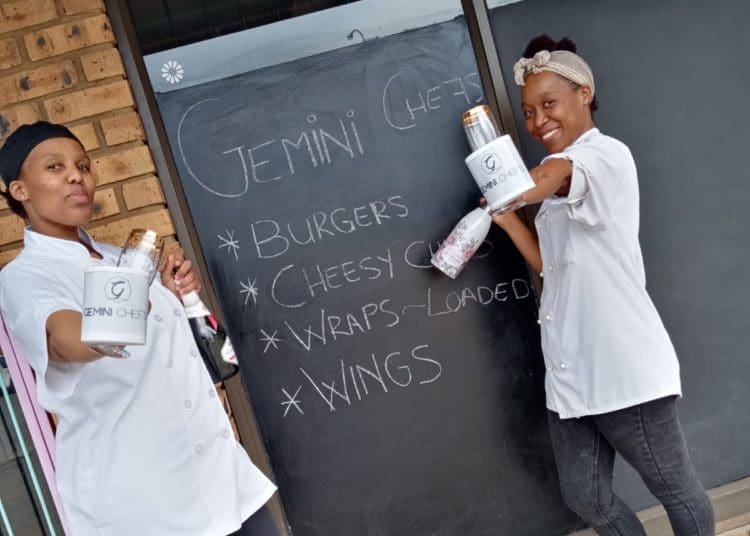 GEMINI CHEFS
* BURGERS
* CHEESY
* WRAPS ~ LOADED
* WINGS
G
GEMINI CHEFS
G
GEMINI CHEFS